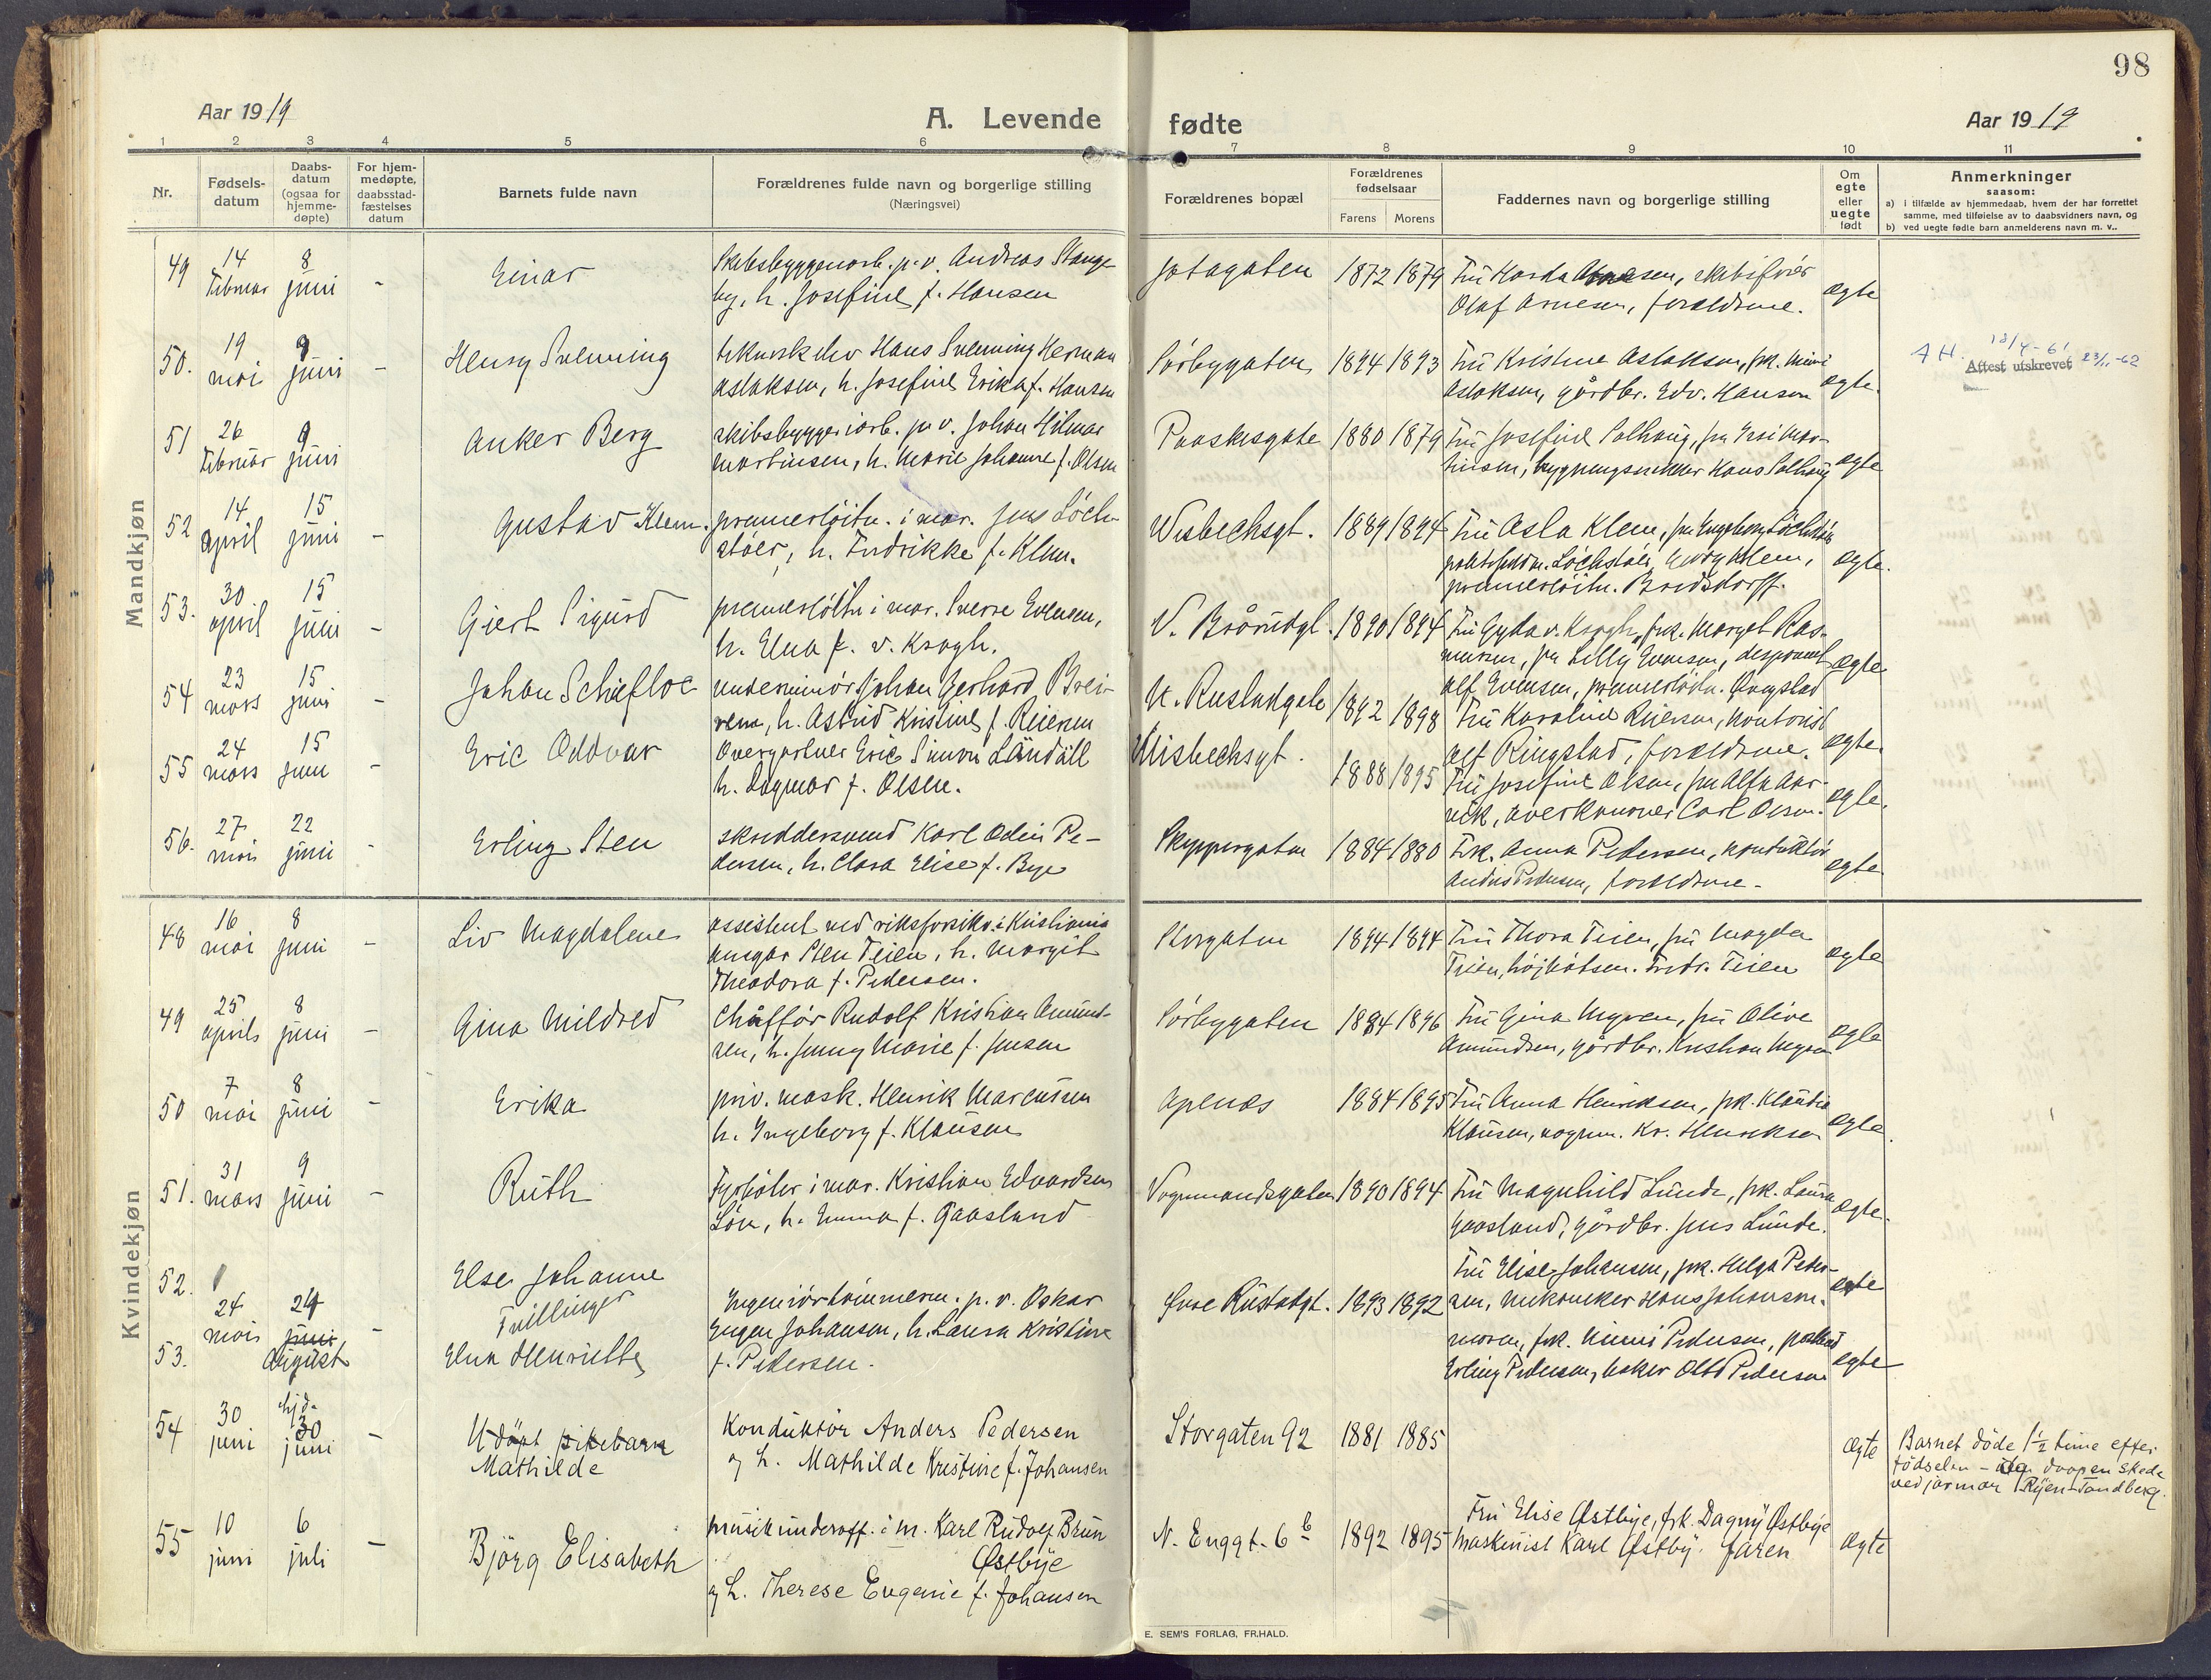 98
Aar 1919
A. Levende fødte
Aar 1919
1 2 3 4 5 6 7 8 9 10 11
Nr.
Fødsels-
datum
Daabs-
datum
(ogsaa for
hjemme-
døpte)
For hjem-
medøpte,
daabsstad-
fæstelses
datum
Barnets fulde navn
Forældrenes fulde navn og borgerlige stilling
(Næringsvei)
Forældrenes bopæl
Forældrenes
fødselsaar
Farens Morens
Faddernes navn og borgerlige stilling
Om
egte
eller
uegte
født
Anmerkninger
saasom:
a) i tilfælde av hjemmedaab, hvem der har forrettet
samme, med tilføielse av to daabsvidners navn, og
b) ved uegte fødte barn anmelderens navn m. v..
Mandkjøn
49 14 Februar 8 juni - Einar
Skibsbyggeriarb. p.v. Andreas Stange-
by, h. Josefine f. Hansen
Jotagaten 1872 1879
Olaf Arnesen, forældrene.
ægte
50. 19 mai 9 juni - Henry Svenning
Hans Svenning Herman
Aslaksen, h. Josefine Erika f. Hansen
Sörbygaten 1894 1893
Fru Kristine Aslaksen, frk. Mimi
Aslaksen, gårdbr. Edv. Hansen
egte.
AH. 18/4-61 Attest utskrevet 23/11-62
51 26 Februar 9 juni Anker Berg
skibsbyggeriarb. p.v. Johan Hilmar
Martinsen, h. Marie Johanne f. Olsen
Paaskesgate 1880 1879
Fru Josefine Solhaug, fru Mar-
tinsen, Hans Solhaug
egte
52 14 april 15 juni - Gustav Klem.
premierlöitn. i mar. Jens Löch-
stöer, h. Fredrikke f. Klem.
Wisbechsgt. 1889 1894
Fru Asla Klem, fru Ingeborg Löchstöer
Löchstöer, Klem,
premierlöitn. Bredsdorff.
egte.
53. 30 april 15 juni - Giert Sigurd
premierlöitn i mar. Sverre Evensen,
h. Elna f. v. Krogh.
V. Brårudgt. 1890 1894
Fru Gyda v. Krogh, frk. Margit Ras-
mussen, fru Lilly Evensen,
Alf Evensen, premierlöitn.
Ægte
54 23 mars 15 juni - Johan Schiefloe
underminör Johan Gerhard Brei-
rem, h. Astrid Kristine f. Reiersen
N. Rustadgate 1892 1898
Fru Karoline Reiersen, kontorist
Alf Ringstad, forældrene.
ægte.
55 24 mars 15 juni - Eric Oddvar
Overgartner Eric Simon Ländäll
h. Dagmar f. Olsen.
Wisbechsgt. 1888 1895
Fru Josefine Olsen, fru Alfa Aar-
vik, Carl Olsen.
egte.
56. 27 mai 22 juni - Erling Sten
skreddersvend Karl Odin Pe-
dersen, h. Clara Elise f. Bye
Skyppergaten 1884 1880
Frk. Anna Pedersen, konduktör
Anders Pedersen, forældrene.
egte
Kvindekjøn
48 16 mai 8 juni - Liv Magdalene
assistent ved riksforsikr. i Kristiania
Ansgar Sten Teien, h. Margit
Theodora f. Pedersen.
Storgaten 1894 1894
Fru Thora Teien, fru Magda
Teien, Fredr. Teien
ægte
49 25 april 8 juni - Gina Mildred
Chafför Rudolf Kristian Amund-
sen, h. Jenny Marie f. Jensen
Sörbygaten 1894 1896
Fru Gina Myren, fru Olive
Amundsen, gårdbr. Kristian Myren
egte
50 7 mai 8 juni - Erika
priv. mask. Henrik Marcussen
h. Ingeborg f. Klausen
Apenæs 1884 1895
Fru Anna Henriksen, frk. Klaudia
Klausen, vognm. Kr. Henriksen
egte.
51. 31 mars 9 juni - Ruth
Fyrböter i mar. Kristian Edvardsen
Löen, h. Emma f. Gaasland
Vognmandsgaten 1890 1894
Fru Magnhild Lunde, frk. Laura
Gaasland, gårdbr. Jens Lunde.
ægte.
52. 24 mai 24 juni august - Else Johanne
Tvillinger
53. Elna Henriette
Ingeniörtömmerm. p.v. Oskar
Eugen Johansen, h. Laura Kristine
f. Pedersen.
Övre Rustadgt. 1893 1892
Fru Elise Johansen, frk. Helga Peder-
sen, mekaniker Hans Johansen.
moren, frk. Minni Pedersen,
Erling Pedersen, Otto Pedersen
egte
egte
54 30 juni hjd. 30 juni - Udöpt pikebarn
Mathilde
Konduktör Anders Pedersen
og h. Mathilde Kristine f. Johansen
Storgaten 92 1881 1885
ægte
Barnet döde 1½ time efter
födselen - daapen skede
ved jormor Ryen-Tandberg.
55 10 juni 6 juli - Björg Elisabeth
musikunderoff. i m. Karl Rudolf Brun
Østbye
og h. Therese Eugenie f. Johansen
N. Enggt. 6 b 1892 1895
Fru Elise Østbye, frk. Dagny Østbye
Maskinist Karl Østby. faren
ægte
E. SEM'S FORLAG, FR.HALD.